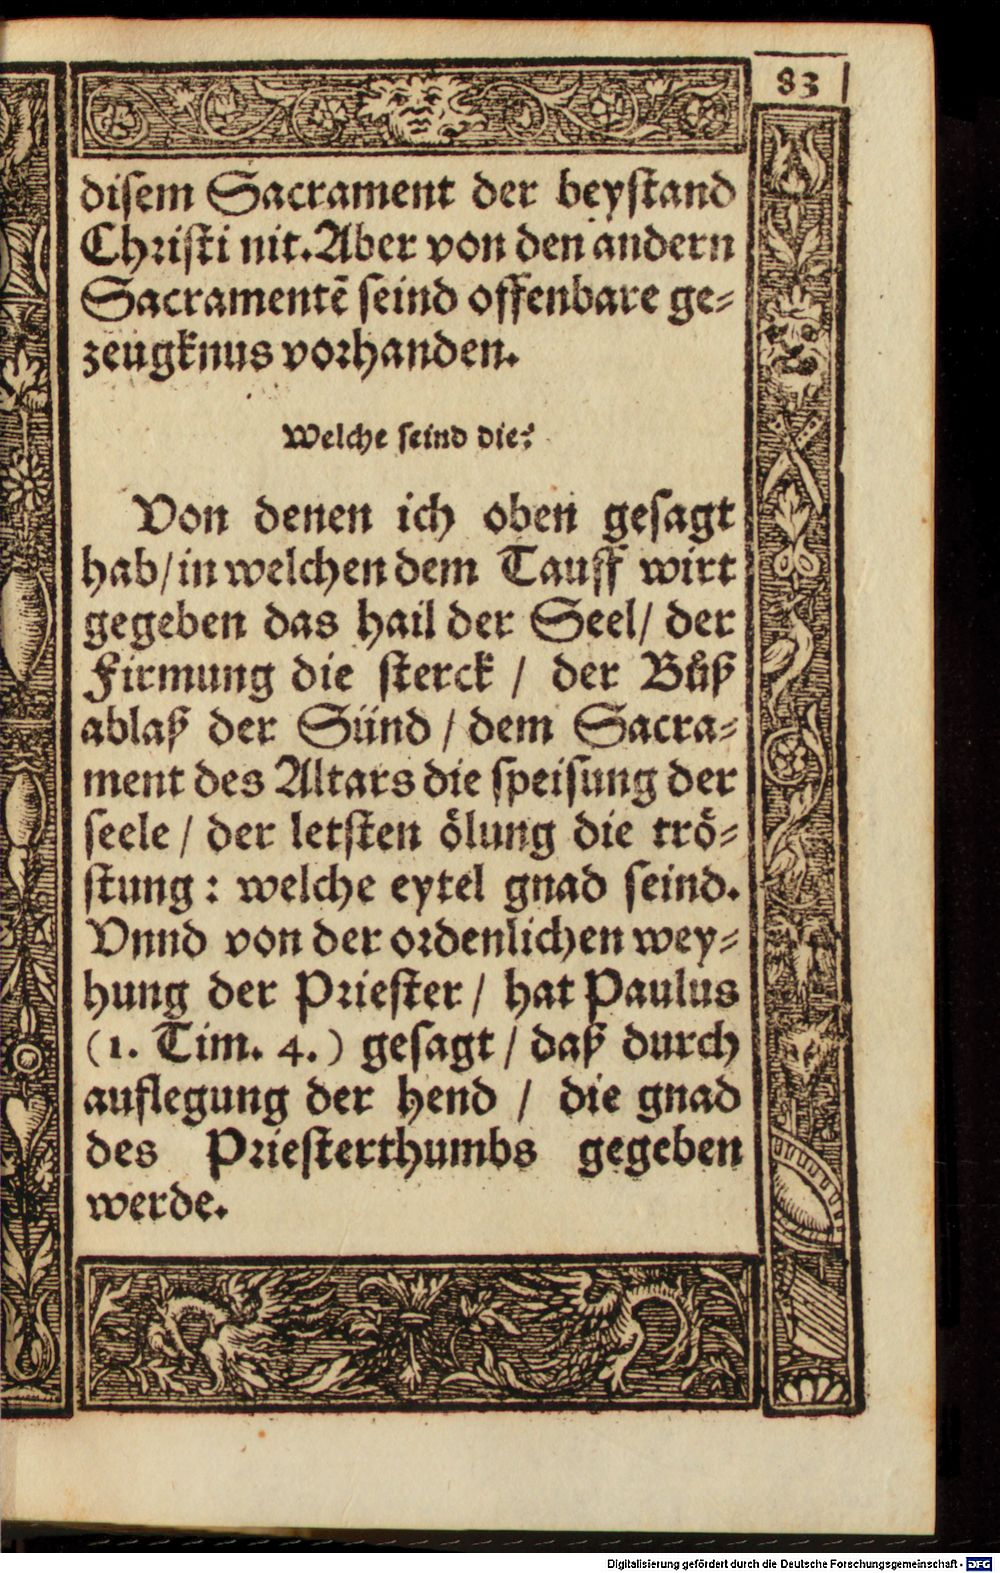 83
disem Sacrament der beystand
Christi nit. Aber von den andern
Sacramentē seind offenbare ge=
zeugknus vorhanden.
Welche seind die?
Von denen ich oben gesagt
hab/in welchen dem Tauff wirt
gegeben das hail der Seel/ der
Firmung die sterck / der Bůß
ablaß der Sünd / dem Sacra=
ment des Altars die speisung der
seele / der letsten ölung die trö=
stung : welche eytel gnad seind.
Vnnd von der ordenlichen wey=
hung der Priester / hat Paulus
(1. Tim. 4.) gesagt / daß durch
auflegung der hend / die gnad
des Priesterthumbs gegeben
werde.
Digitalisierung gefördert durch die Deutsche Forschungsgemeinschaft - DFG